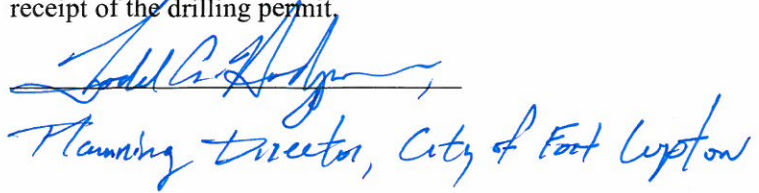 receipt of the drilling permit.
Todd A. Hodges,
Planning Director, City of Fort Lupton